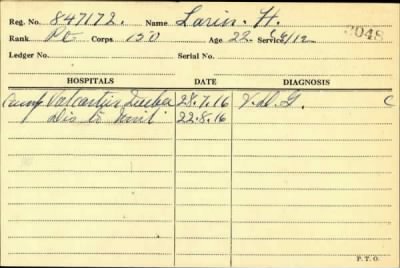 Reg. No. 847172. Name Larin. H.
Rank Pte Corps 150 Age 22 Service 6/12 3048
Ledger No. Serial No.
HOSPITALS DATE DIAGNOSIS
Camp Valcartier Quebec 28.7.16 V.D.G. C
Dis to Unit. 22.8.16
P.T.O.